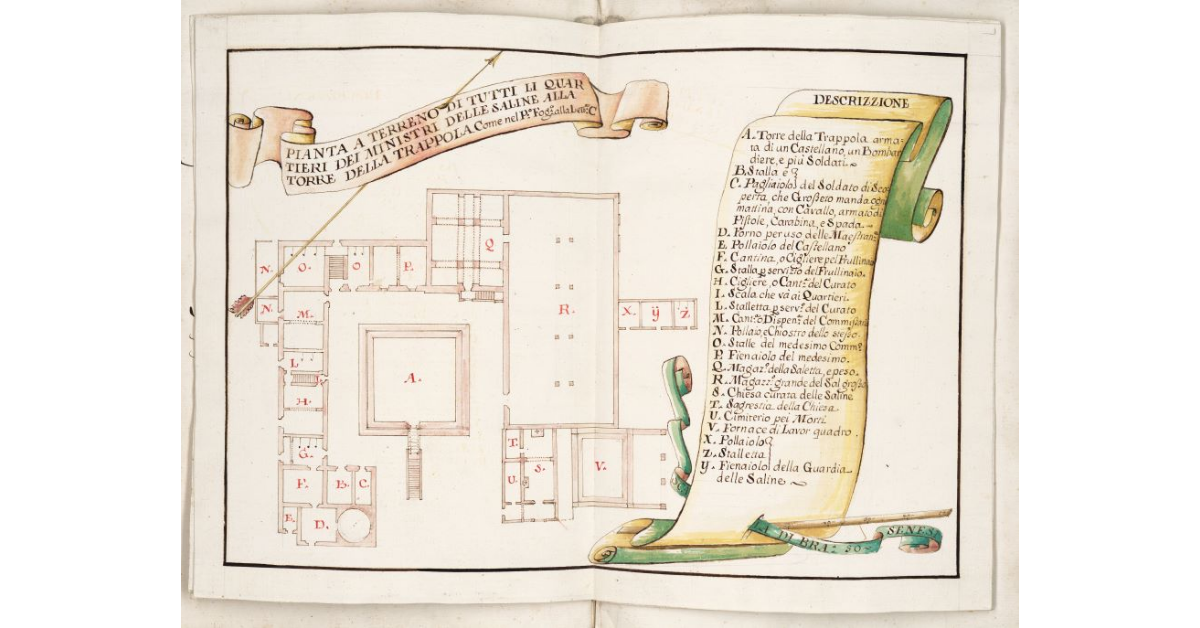 PIANTA A TERRENO DI TUTTI LI QUAR
TIERI DEI MINISTRI DELLE SALINE ALLA
TORRE DELLA TRAPPOLA Come nel Pº Fogº alla Letrª C
DESCRIZZIONE
A. Torre della Trappola arma=
ta di un Castellano, un Bombar
diere, e più Soldati.
B. Stalla e
C. Pagliaiolo del Soldato di Sco
perta, che Groseto manda ogni
mattina, con Cavallo, armato di
Pistole, Carabina, e Spada.
D. Forno per uso delle Maestran
E. Pollaiolo del Castellano
F. Cantina, o Cigliere pel Frullino
G. Stalla p servizio del Frullinaio.
H. Cigliere, o Cantª del Curato
I. Scala che và ai Quartieri.
L. Stalletta p servº del Curato
M. Cantª o Dispenª del Commisario
N. Pollaio, e Chiostro dello stesso
O. Stalle del medesimo Commº
P. Fienaiolo del medesimo.
Q. Magazº della Saletta, e peso.
R. Magazzº grande del Sal grosso
S. Chiesa curata delle Saline
T. Sagrestia della Chiesa
U. Cimiterio pei Morti
V. Fornace di Lavor quadro.
X. Pollaiolo
Z. Stalletta
ÿ. Fienaiolo della Guardia
delle Saline
N. O. O P. Q
N. M. R. X. ÿ Z
L
A.
I
H.
G. T.
S. V.
F. B. C. U.
E. D.
A DI BRA: 80 SENESI